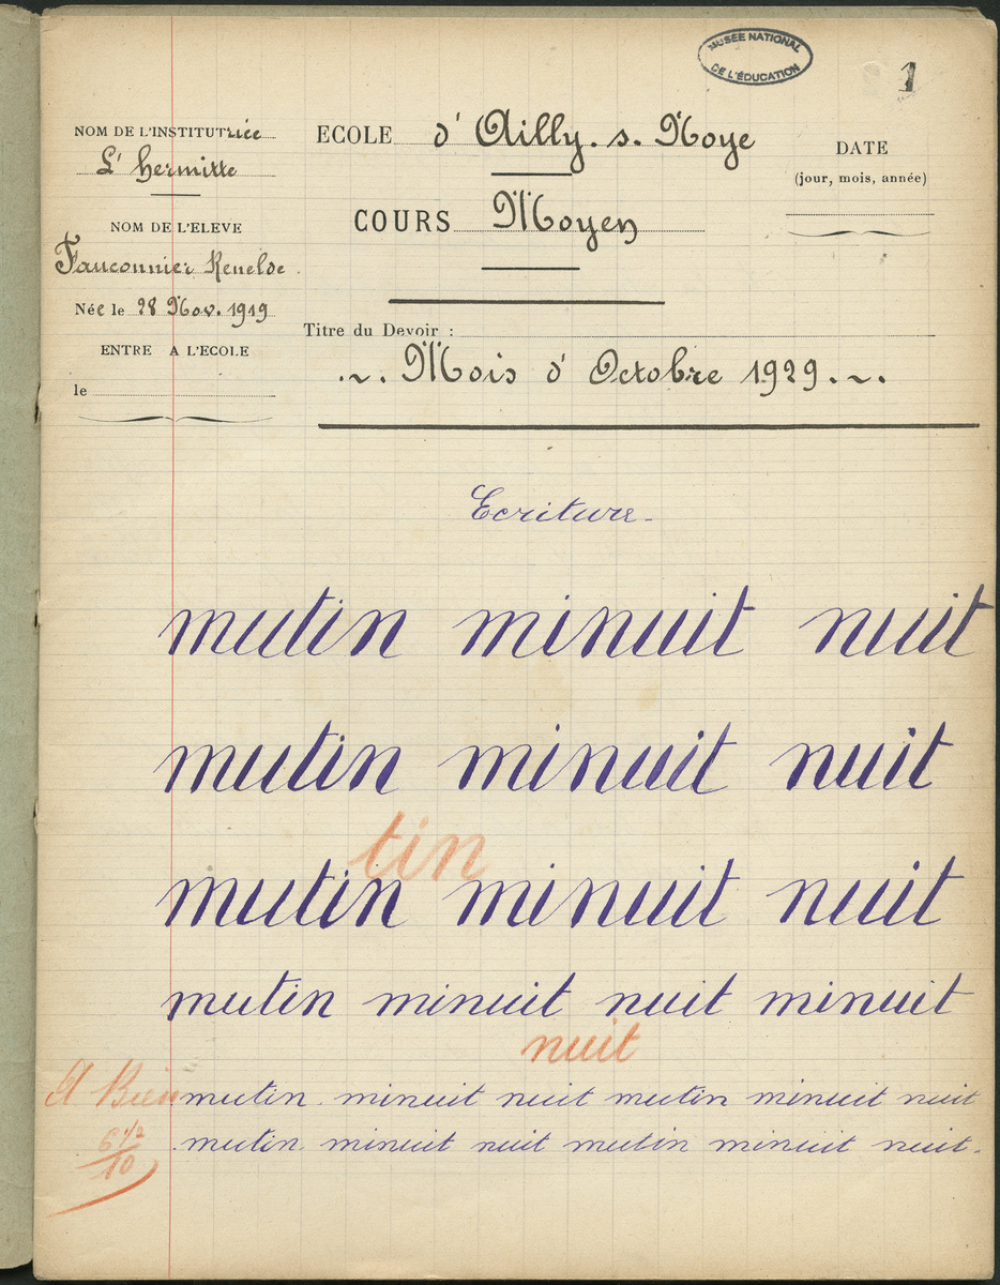 MUSÉE NATIONAL
DE L'ÉDUCATION
1
NOM DE L'INSTITUTrice
L'hermitte
ECOLE d'Ailly. s. Noye
DATE
(jour, mois, année)
COURS Moyen
NOM DE L'ELEVE
Fauconnier Renelde
Née le 28 Nov. 1919
ENTRE A L'ECOLE
le
Titre du Devoir :
.~. Mois d'Octobre 1929 .~.
Ecriture
mutin minuit nuit
mutin minuit nuit
tin
mutin minuit nuit
mutin minuit nuit minuit
nuit
A Bien mutin minuit nuit mutin minuit nuit
6 1/2
10
mutin minuit nuit mutin minuit nuit.